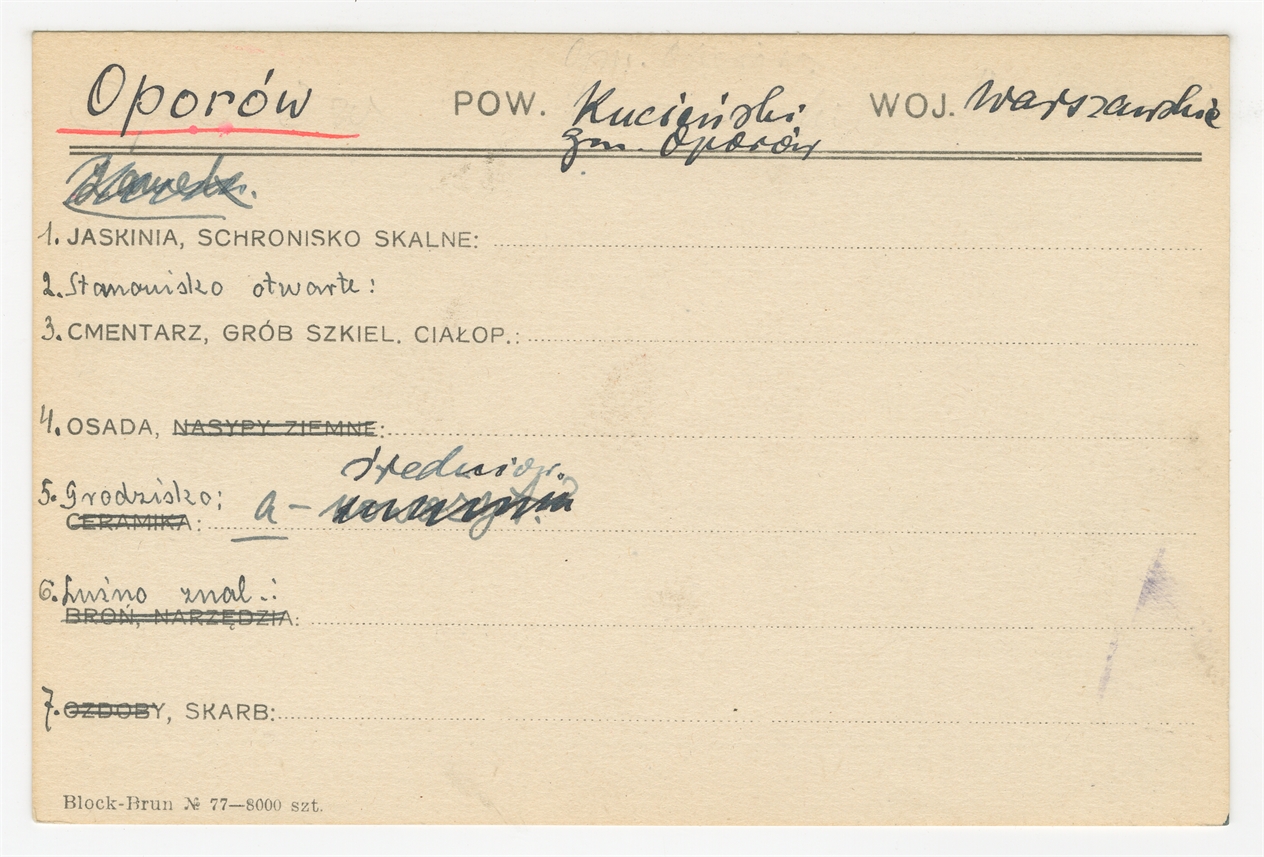 Oporów POW. Kucieński WOJ. Warszawskie
gm. Oporów
1. JASKINIA, SCHRONISKO SKALNE:
2. Stanowisko otwarte:
3. CMENTARZ, GRÓB SZKIEL. CIAŁOP.:
4. OSADA, NASYPY ZIEMNE:
średniow.
5. Grodzisko; a -
CERAMIKA:
6. Luźno znal.:
BROŃ, NARZĘDZIA:
7. OZDOBY, SKARB:
Block-Brun № 77—8000 szt.